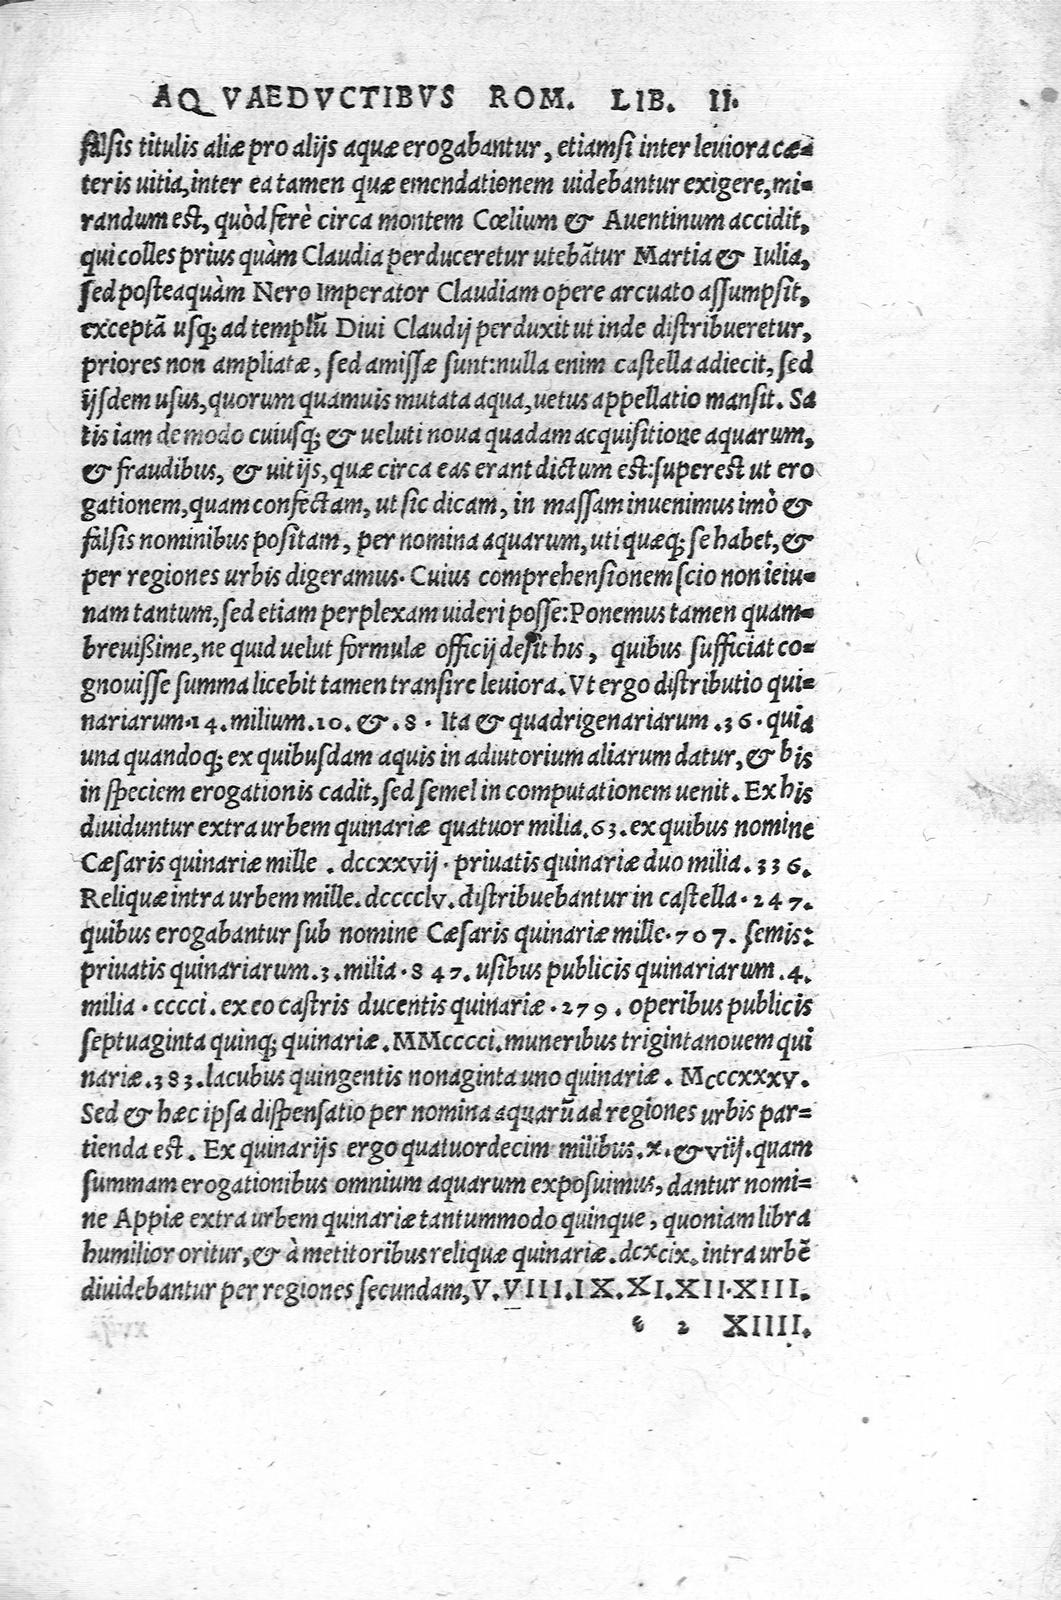 AQVAEDVCTIBVS ROM. LIB. II.
falsis titulis aliæ pro alijs aquæ erogabantur, etiamsi inter leuiora cæ=
teris uitia, inter ea tamen quæ emendationem uidebantur exigere, mi=
randum est, quòd ferè circa montem Cœlium & Auentinum accidit,
qui colles prius quàm Claudia perduceretur utebãtur Martia & Iulia,
sed posteaquàm Nero Imperator Claudiam opere arcuato assumpsit,
exceptã usq; ad templũ Diui Claudij perduxit ut inde distribueretur,
priores non ampliatæ, sed amissæ sunt: nulla enim castella adiecit, sed
ijsdem usus, quorum quamuis mutata aqua, uetus appellatio mansit. Sa
tis iam de modo cuiusq; & ueluti noua quadam acquisitione aquarum,
& fraudibus, & uitijs, quæ circa eas erant dictum est: superest ut ero
gationem, quam confectam, ut sic dicam, in massam inuenimus imò &
falsis nominibus positam, per nomina aquarum, uti quæq; se habet, &
per regiones urbis digeramus. Cuius comprehensionem scio non ieiu=
nam tantum, sed etiam perplexam uideri posse: Ponemus tamen quam=
breuißime, ne quid uelut formulæ officij desit his, quibus sufficiat co=
gnouisse summa licebit tamen transire leuiora. Vt ergo distributio qui=
nariarum .14. milium .10. & .8. Ita & quadrigenariarum .36. quia
una quandoq; ex quibusdam aquis in adiutorium aliarum datur, & bis
in speciem erogationis cadit, sed semel in computationem uenit. Ex his
diuiduntur extra urbem quinariæ quatuor milia .63. ex quibus nomine
Cæsaris quinariæ mille . dccxxvij . priuatis quinariæ duo milia .336.
Reliquæ intra urbem mille. dcccclv. distribuebantur in castella .247.
quibus erogabantur sub nomine Cæsaris quinariæ mille .707. semis:
priuatis quinariarum .3. milia .847. usibus publicis quinariarum .4.
milia . cccci . ex eo castris ducentis quinariæ .279. operibus publicis
septuaginta quinq; quinariæ . MMcccci. muneribus trigintanouem qui
nariæ .383. lacubus quingentis nonaginta uno quinariæ . Mcccxxxv.
Sed & hæc ipsa dispensatio per nomina aquarũ ad regiones urbis par=
tienda est. Ex quinarijs ergo quatuordecim milibus .x. & viij. quam
summam erogationibus omnium aquarum exposuimus, dantur nomi=
ne Appiæ extra urbem quinariæ tantummodo quinque, quoniam libra
humilior oritur, & à metitoribus reliquæ quinariæ . dcxcix. intra urbẽ
diuidebantur per regiones secundam, V. VIII. IX. XI. XII. XIII.
e 2 XIIII.